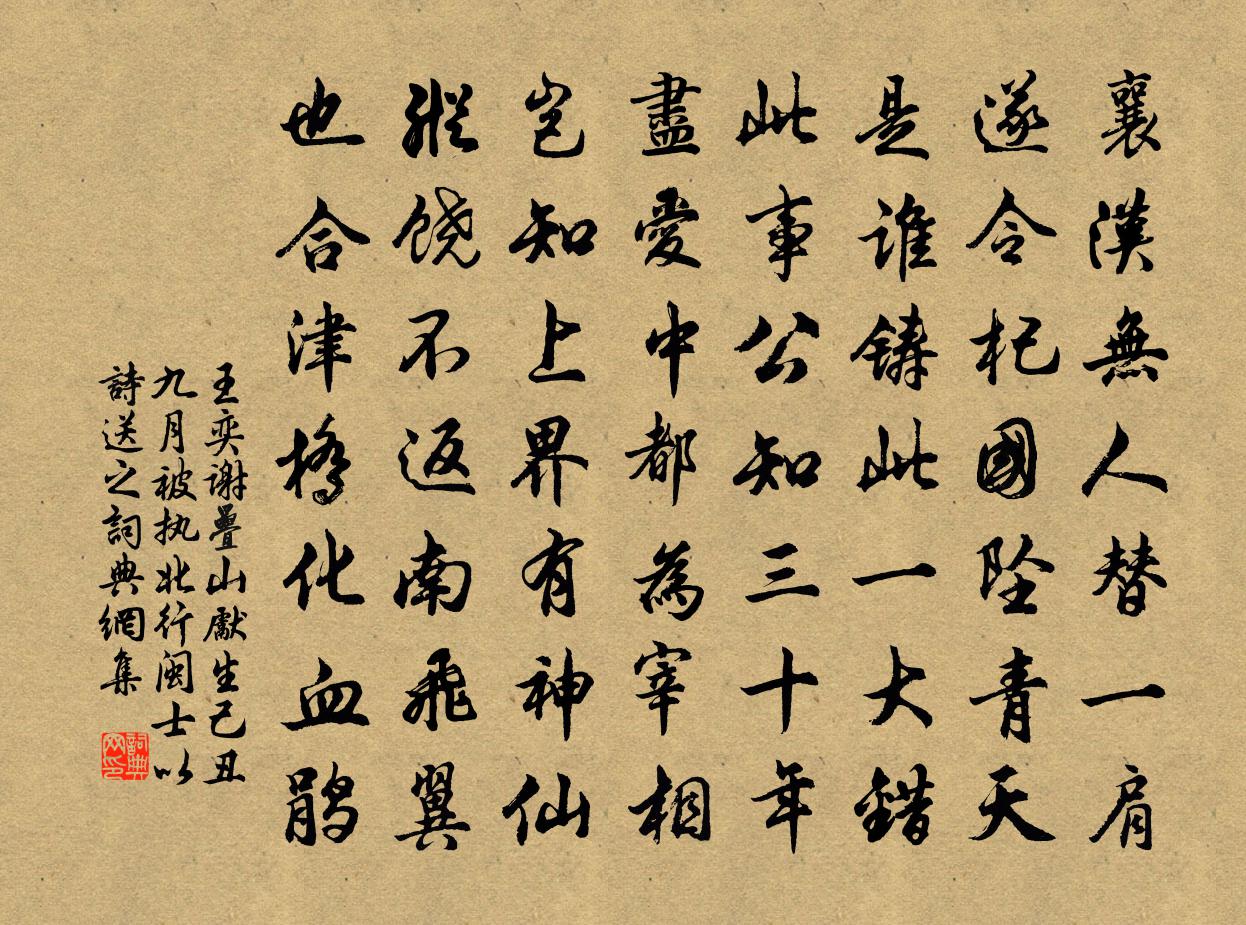 襄漢無人替一肩
遂令杞國墜青天
是誰鑄此一大錯
此事公知三十年
盡愛中都為宰相
豈知上界有神仙
縱饶不返南飛翼
也合津橋化血鹃
王奕谢疊山獻生己丑
九月被执北行闽士以
詩送之詞典網集
詞典网印